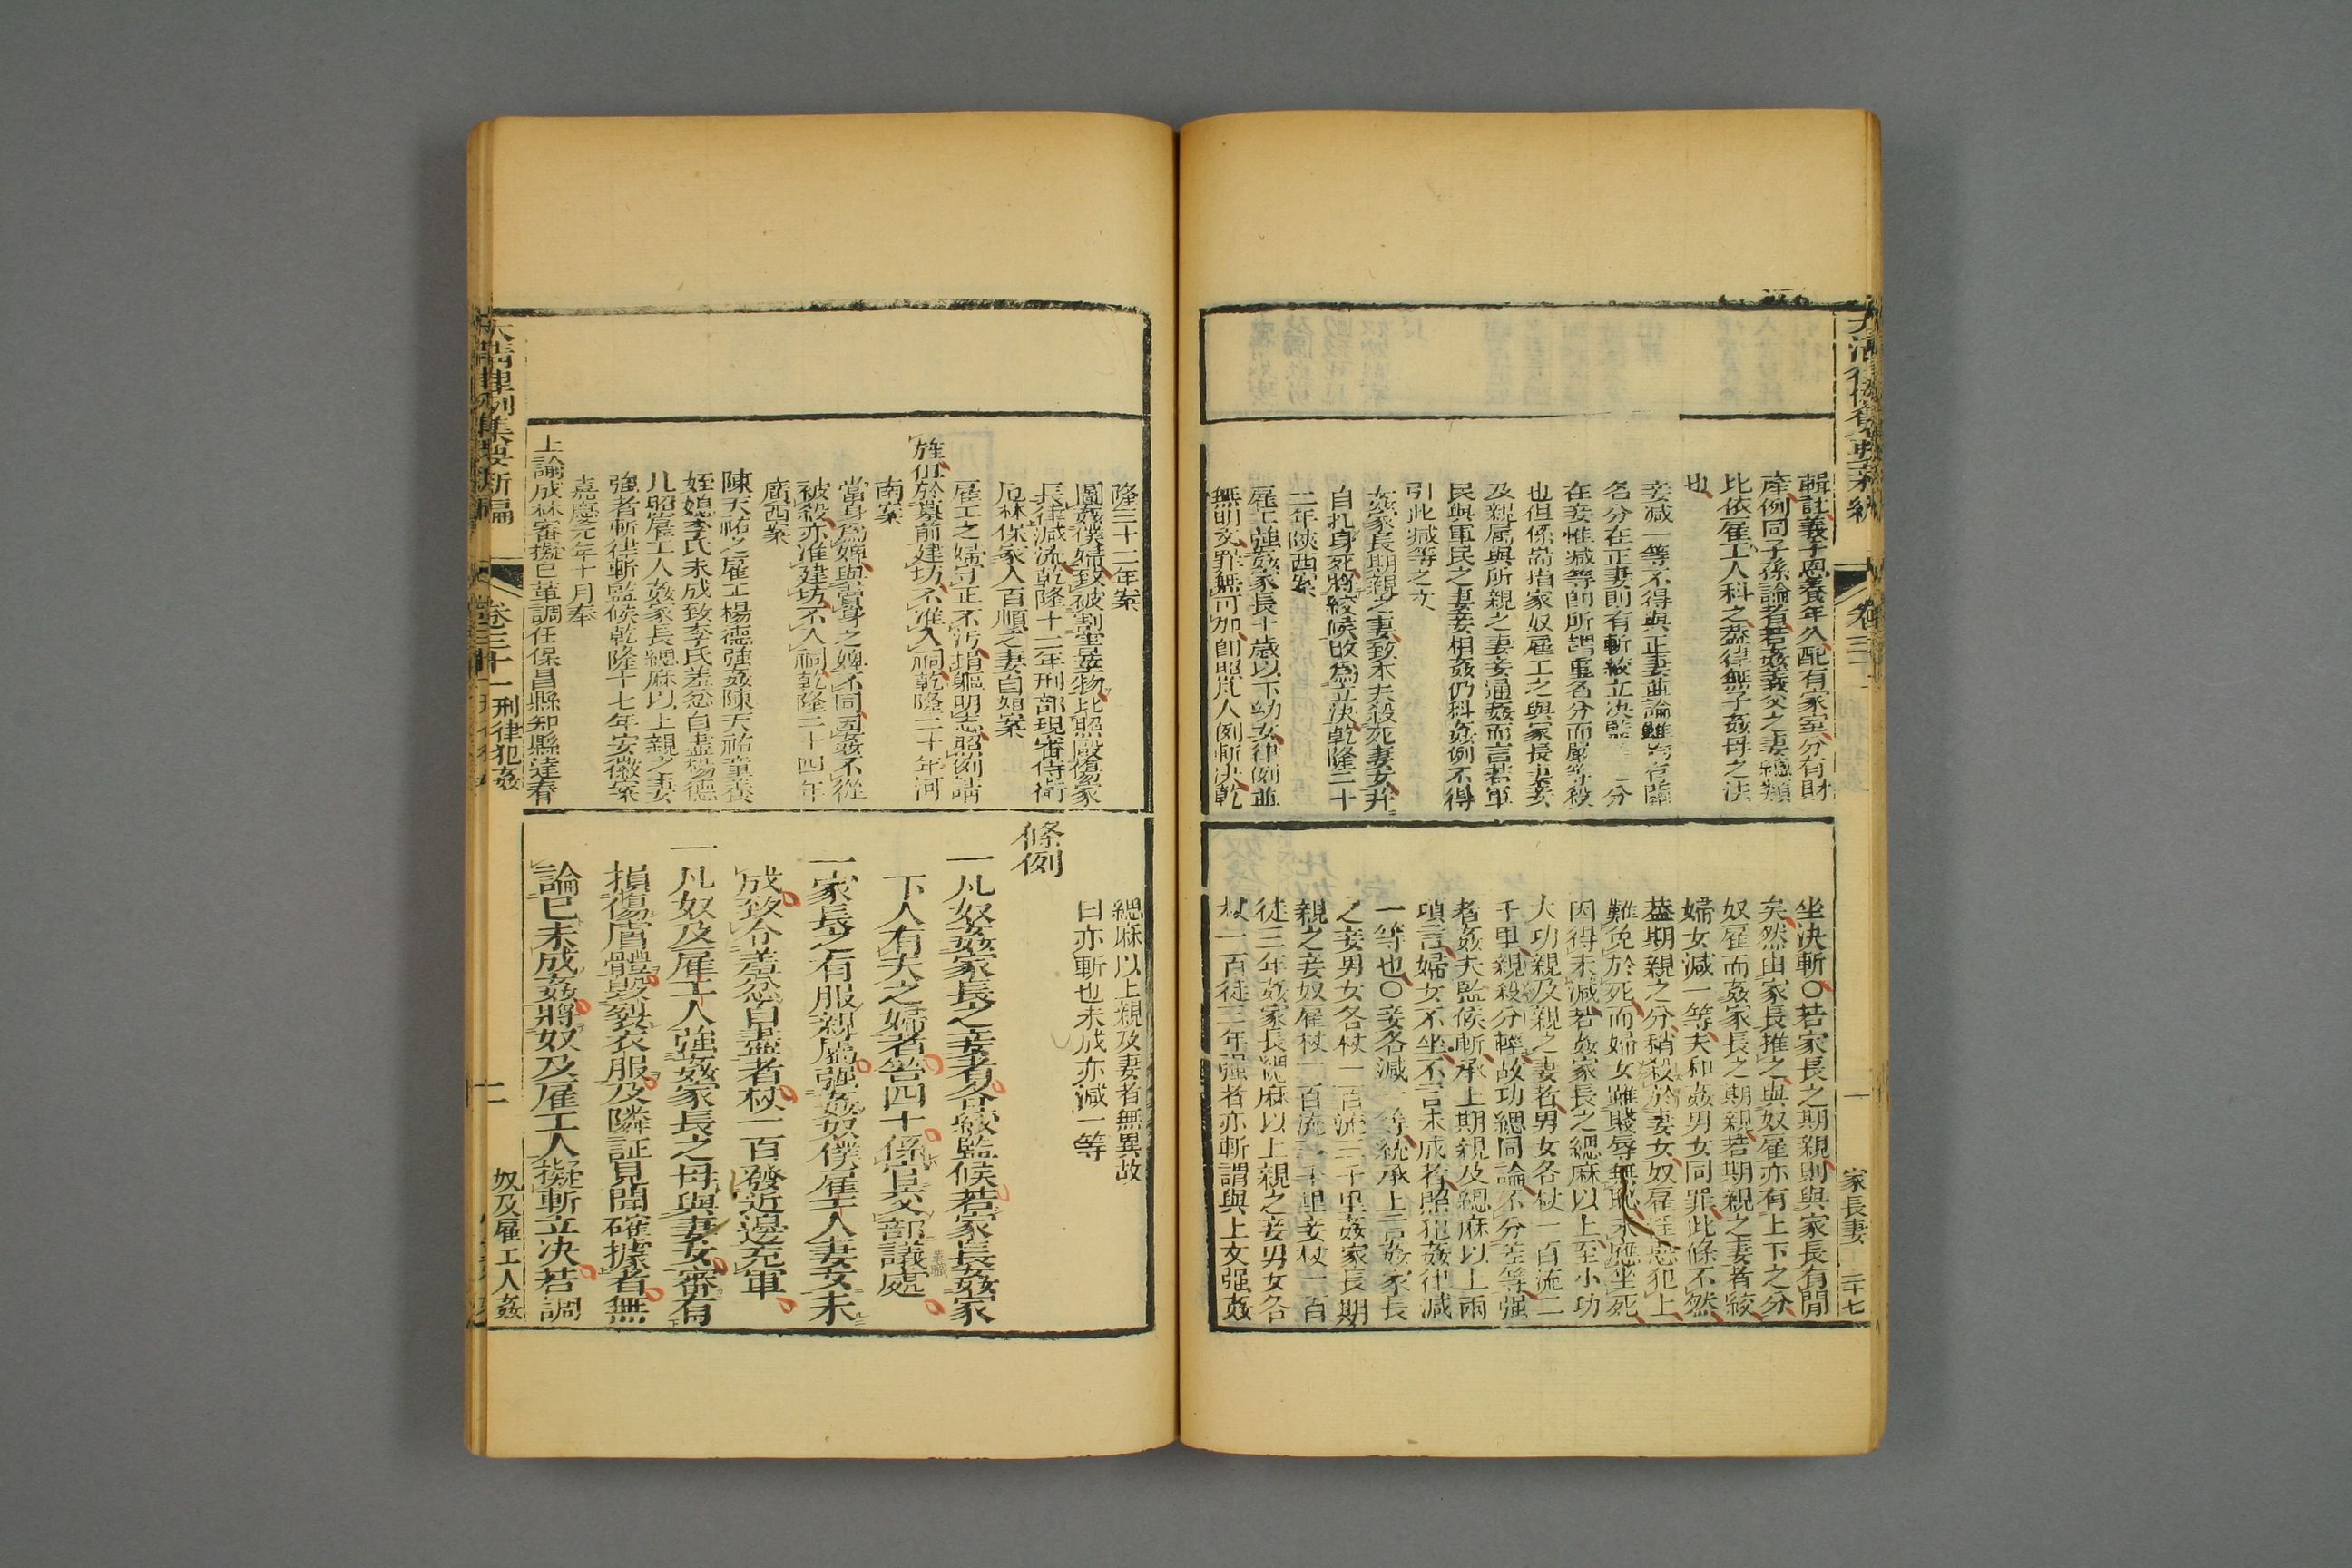 輯註義子恩養年久配有家室分有財
產例同子孫論者若姦義父之妻總類
比依雇工人科之蓋律無子姦母之法
也
妾減一等不得與正妻並論雖
名分在正妻則有斬絞立決監 分
在妾惟減等卽所謂重名分而嚴等殺
也但係耑指家奴雇工之與家長妻妾
及親屬與所親之妻妾通姦而言若軍
民與軍民之妻妾相姦仍科姦例不得
引此減等之文
姦家長期親之妻致本夫殺死妻女幷
自扎身死將絞候改爲立決乾隆二十
二年陝西案
雇工強姦家長十歲以下幼女律例並
無明文罪無可加卽照凡人例斬決乾
坐決斬〇若家長之期親則與家長有閒
矣然由家長推之與奴雇亦有上下之分
奴雇而姦家長之期親若期親之妻者絞
婦女減一等夫和姦男女同罪此條不然
蓋期親之分稍殺於妻女奴雇淫惡犯上
難免於死而婦女雖賤辱無恥未應坐死
因得末減若姦家長之緦麻以上至小功
大功親及親之妻者男女各杖一百流二
千里親殺分輕故功緦同論不分差等强
者姦夫監候斬承上期親及緦麻以上兩
項言婦女不坐不言未成者照犯姦律減
一等也〇妾各減一等統承上言姦家長
之妾男女各杖一百流三千里姦家長期
親之妾奴雇杖一百流二千里妾杖一百
徒三年姦家長緦麻以上親之妾男女各
杖一百徒三年强者亦斬謂與上文强姦
家長妻 三十七
隆三十二年案
圖姦僕婦致被割莖物比照毆傷家
長律減流乾隆十二年刑部現審侍衛
厄林保家人百順之妻自縊案
雇工之婦守正不污捐軀明志照例請
旌但於墓前建坊不准入祠乾隆三十年河
南案
當身爲婢與賣身之婢不同因姦不從
被殺亦准建坊不入祠乾隆二十四年
廣西案
陳天祐之雇工楊德強姦陳天祐童養
姪媳李氏未成致李氏羞忿自盡楊德
凡照雇工人姦家長緦麻以上親之妻
強者斬律斬監候乾隆十七年安徽案
嘉慶元年十月奉
上諭成林審擬已革調任保昌縣知縣達春
緦麻以上親及妻者無異故
曰亦斬也未成亦減一等
條例
一凡奴姦家長之妾者各絞監候若家長姦家
下人有夫之婦者笞四十係官交部議處
一家長之有服親屬強姦奴僕雇工人妻女未
成致令羞忿自盡者杖一百發近邊充軍
一凡奴及雇工人強姦家長之母與妻女審有
損傷膚體毀裂衣服及隣証見聞確據者無
論已未成姦將奴及雇工人擬斬立決若調
大淸律例集要新編 卷三十一 刑律犯姦 奴及雇工人姦